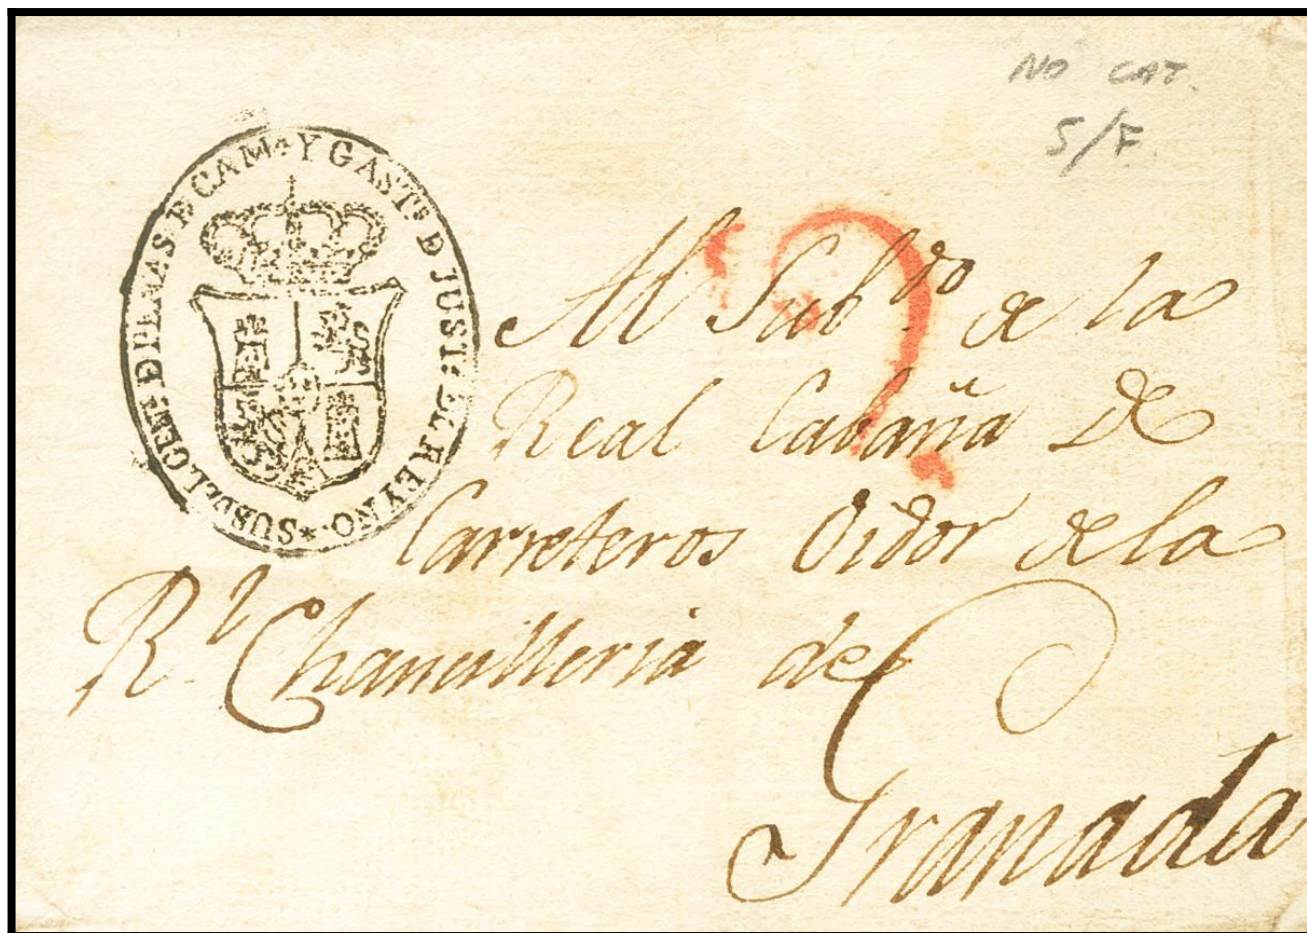 NO CAT.
S/F.
*SUBDEL. GEN. D PENAS D CAM.ª Y GAST.S D JUST.A D.L REYNO.
Al Sub.do de la
Real Cabaña De
Carreteros Oidor de la
R.l Chancilleria de
Granada